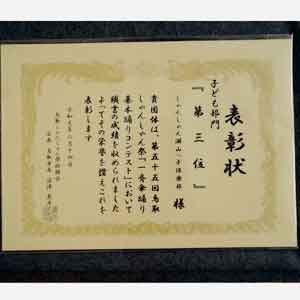 表彰状
子ども部門
『第三位』
しゃんしゃん湖山っ子倶楽部 様
貴団体は、第五十五回鳥取
しゃんしゃん祭「一斉傘踊り
基本踊りコンテスト」において
頭書の成績を収められました
よってその栄誉を讃えこれを
表彰します
令和元年八月十四日